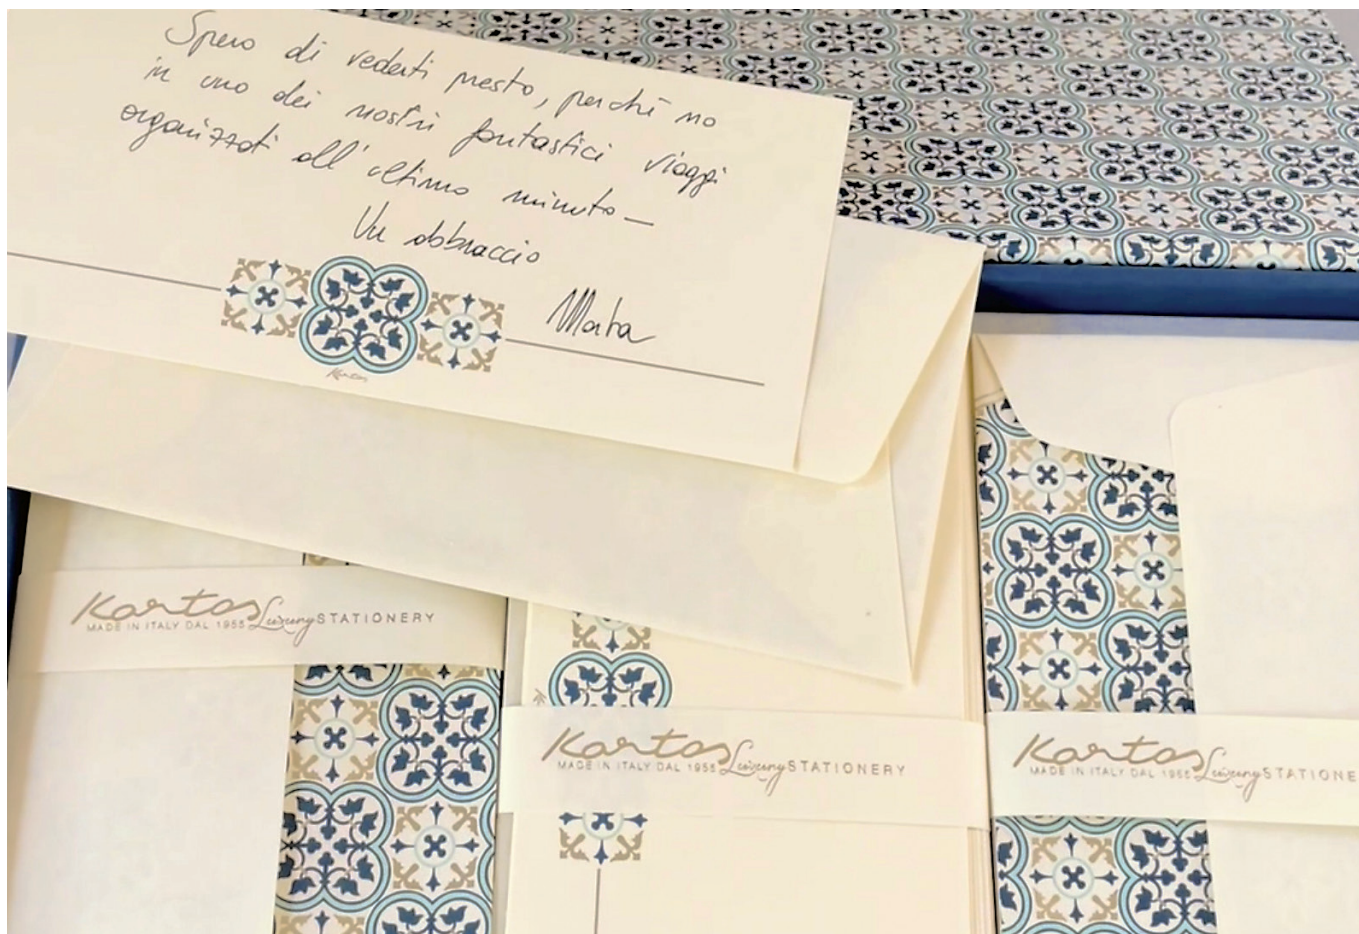 Spero di vederti presto, perché no
in uno dei nostri fantastici viaggi
organizzati all'ultimo minuto—
Un abbraccio
Marta
Kartos
Kartos
MADE IN ITALY DAL 1955 Luxury STATIONERY
Kartos
MADE IN ITALY DAL 1955 Luxury STATIONERY
Kartos
MADE IN ITALY DAL 1955 Luxury STATIONE